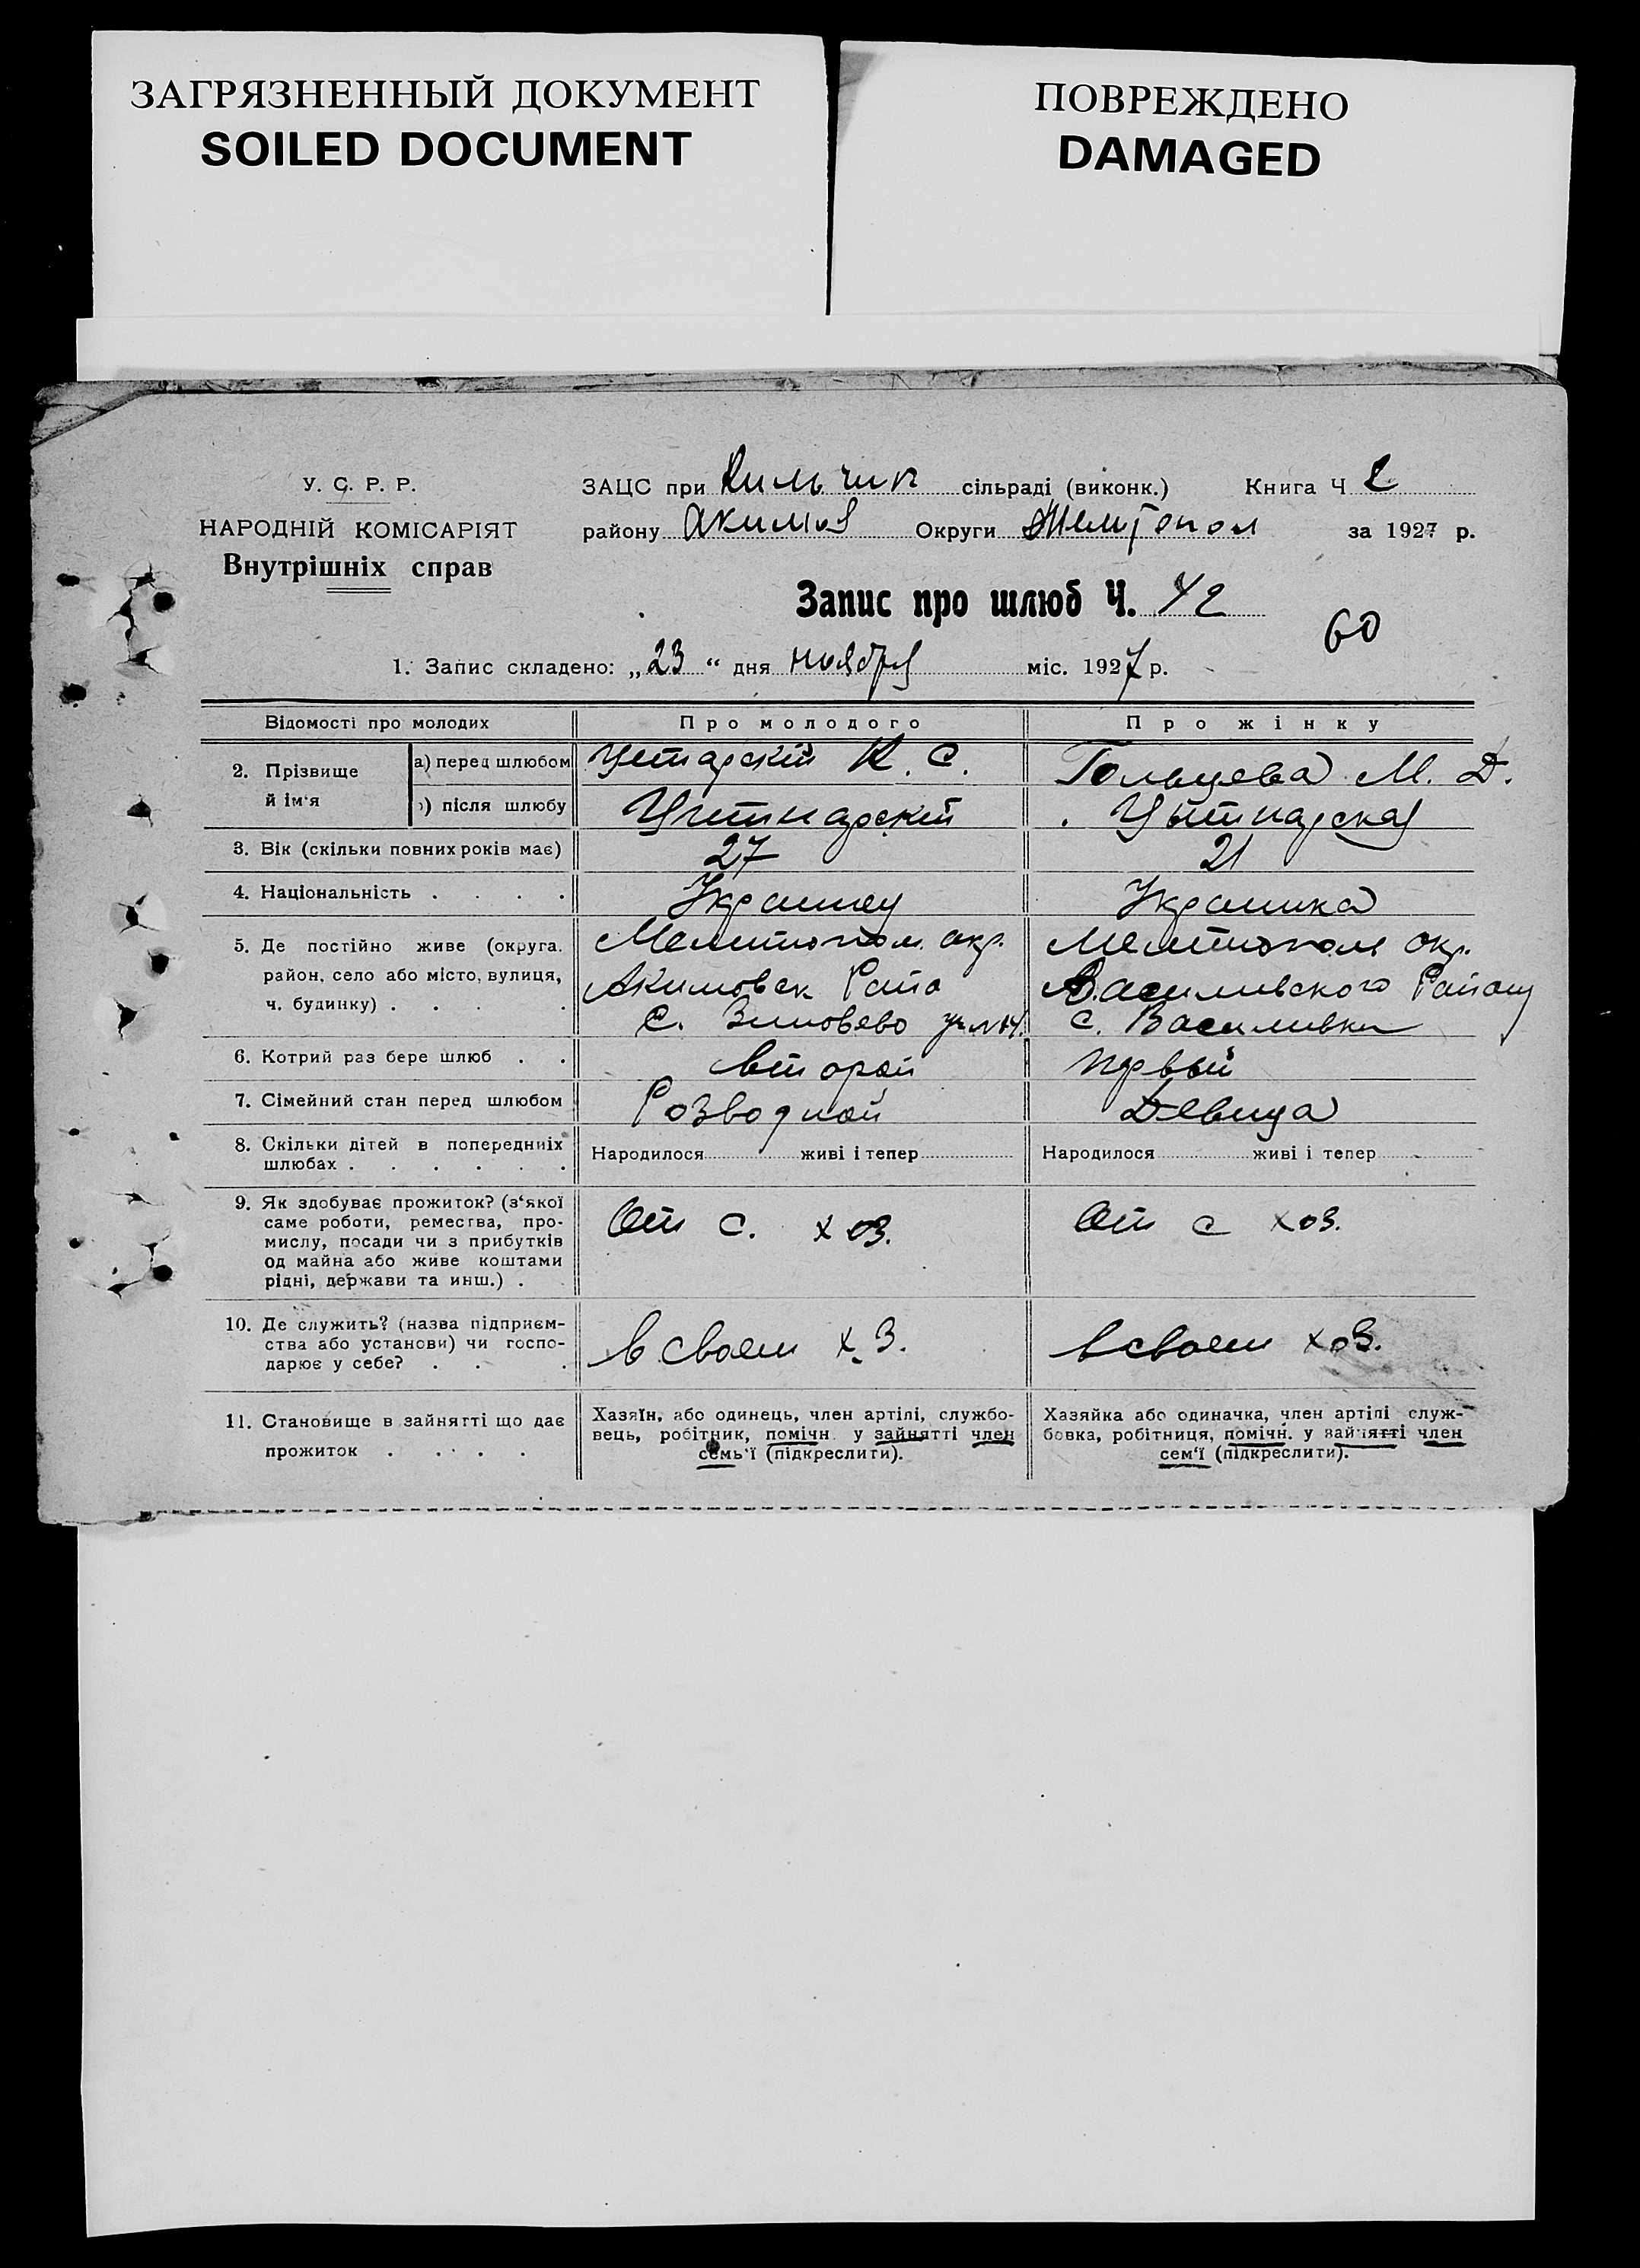 ЗАГРЯЗНЕННЫЙ ДОКУМЕНТ
SOILED DOCUMENT
ПОВРЕЖДЕНО
DAMAGED
У. С. Р. Р.
НАРОДНІЙ КОМІСАРІЯТ
Внутрішніх справ
ЗАЦС при Кильчик сільраді (виконк.) Книга Ч 2
району Акимов Округи Мелитопол за 1927 р.
Запис про шлюб Ч. 42
60
1. Запис складено: „23“ дня ноября міс. 1927 р.
Відомості про молодих Про молодого Про жінку
2. Прізвище й ім'я
а) перед шлюбом К. С. Гольцева М. Д.
б) після шлюбу
3. Вік (скільки повних років має) 27 21
4. Національність . . . . Украинец Украинка
5. Де постійно живе (округа, район, село або місто, вулиця, ч. будинку) . . .
Мелитопол. окр.
Акимовск Райо
С. Зиновьево
Мелитопол окр.
Василивского Району
с. Василивки
6. Котрий раз бере шлюб . . второй первый
7. Сімейний стан перед шлюбом Розводной Девица
8. Скільки дітей в попередніх шлюбах . . . . . .
Народилося живі і тепер
Народилося живі і тепер
9. Як здобуває прожиток? (з'якої
саме роботи, ремества, про-
мислу, посади чи з прибутків
од майна або живе коштами
рідні, держави та инш.) .
От с. хоз.
От с хоз.
10. Де служить? (назва підприєм-
ства або установи) чи госпо-
дарює у себе? . . .
в своем х. з.
в своем хоз.
11. Становище в зайнятті що дає
прожиток . . . .
Хазяїн, або одинець, член артілі, службо-
вець, робітник, помічн. у зайнятті член
семь'ї (підкреслити).
Хазяйка або одиначка, член артілі служ-
бовка, робітниця, помічн. у зайнятті член
сем'ї (підкреслити).